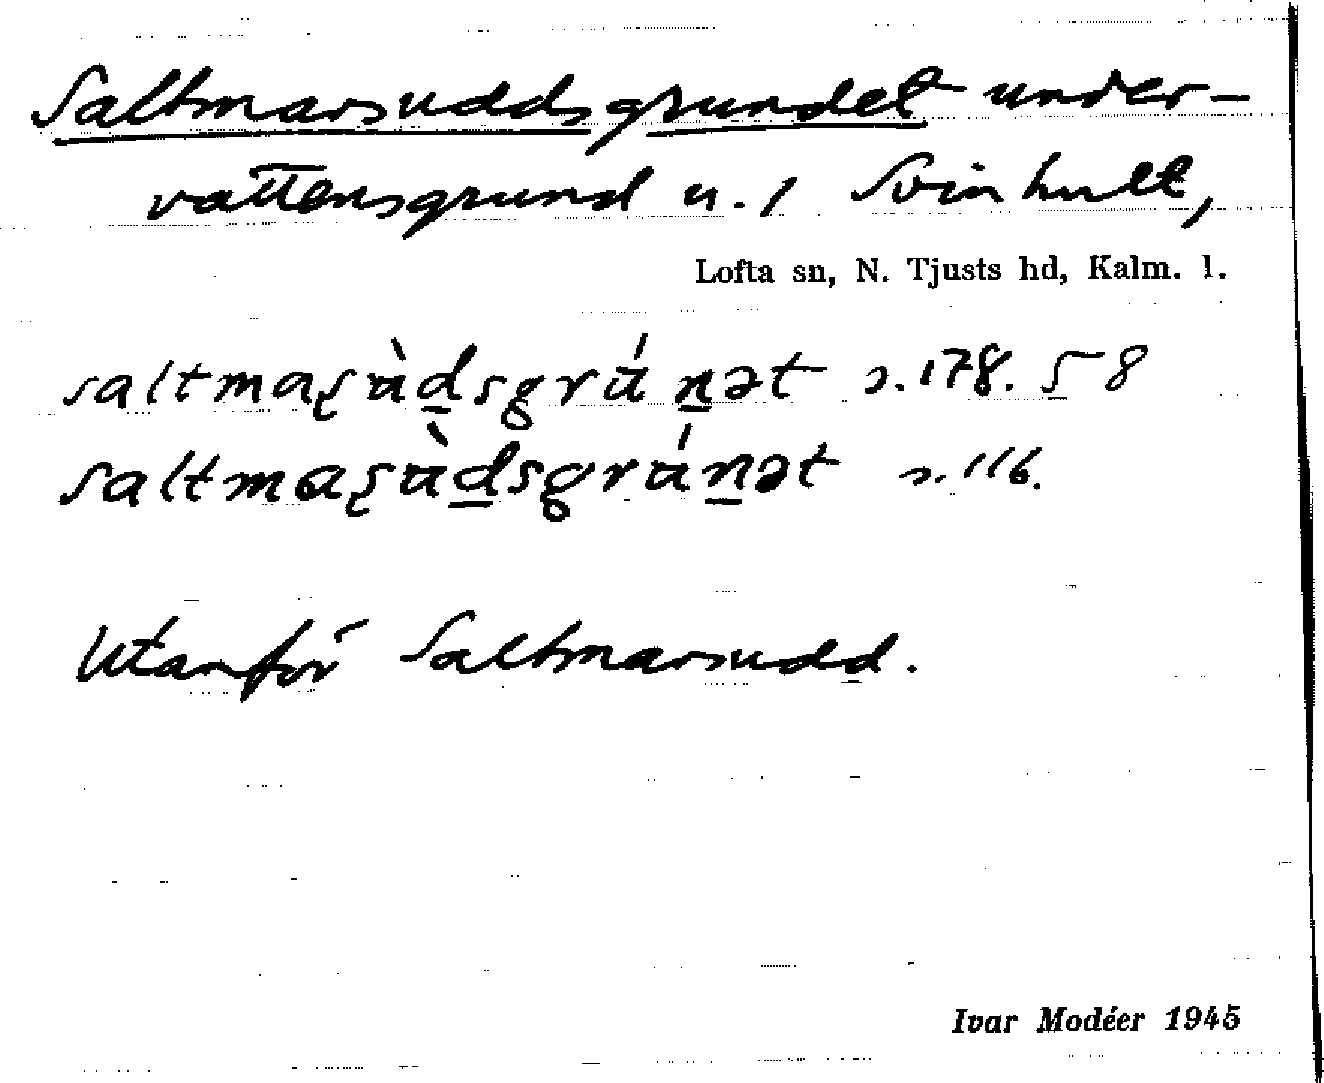 Saltmarsuddsgrundet under-
vattensgrund u. / Svinhult,
Lofta sn, N. Tjusts hd, Kalm. l.
saltmaʂùdsgrúnət s. 178. 58
saltmaʂùdsgrúnət s. 116.
Utanför Saltmarsudd.
Ivar Modéer 1945